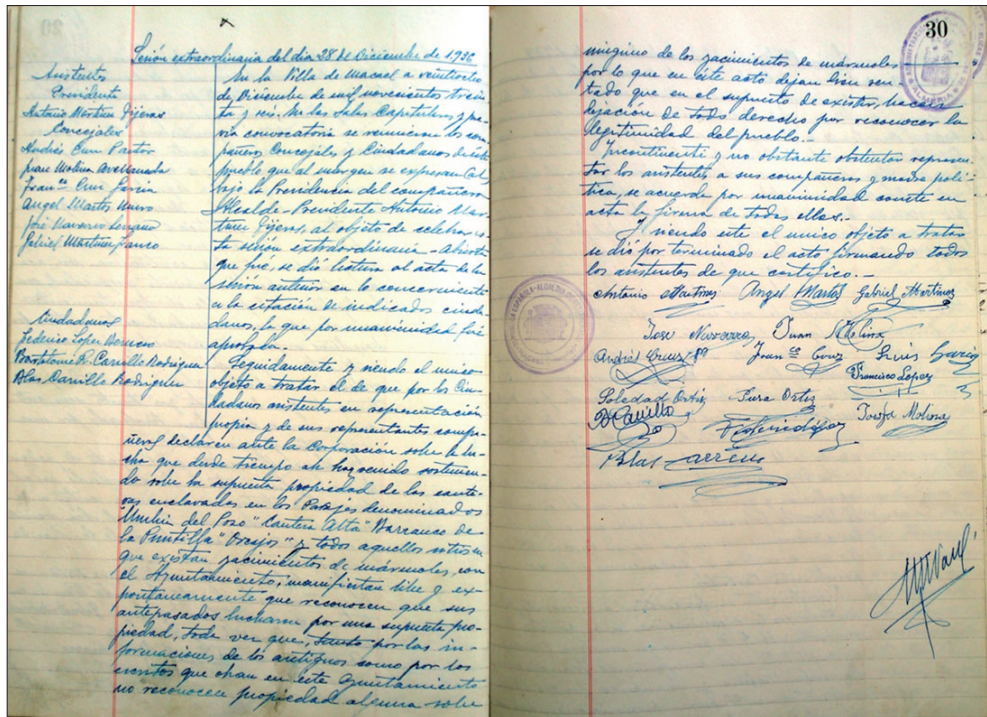 Sesión extraordinaria del día 28 de Diciembre de 1936
Asistentes
Presidente
Antonio Martínez Gijeras
Concejales
Andrés Cruz Pastor
Juan Molina Avellaneda
Franco Cruz García
Angel Martos
José Navarro Lozano
Gabriel Martínez
Ciudadanos
Federico López
Bartolomé R. Carrillo Rodríguez
Blas Carrillo Rodríguez
En la Villa de Macael a veintiocho
de Diciembre de mil novecientos trein-
ta y seis. En las Salas Capitulares, y pre-
via convocatoria se reunieron los com-
pañeros Concejales y Ciudadanos de este
pueblo que al margen se expresan
bajo la Presidencia del compañero
Alcalde-Presidente Antonio Mar-
tínez Gijeras, al objeto de celebrar es-
ta sesión extraordinaria. Abierta
que fué, se dió lectura al acta de la
sesión anterior en lo concerniente
a la citación de indicados ciuda-
danos, la que por unanimidad fué
aprobada.
Seguidamente y siendo el unico
objeto a tratar el de que por los Ciu-
dadanos asistentes en representación
propia y de sus representantes compa-
ñeros declaren ante la Corporación sobre la lu-
cha que desde tiempo ha venido sostenien-
do sobre la supuesta propiedad de las cante-
ras enclavadas en los Parajes denominados
"Umbria del Pozo" "Cantera Alta" "Barranco de
la Puntilla" "Orcajos" y todos aquellos sitios en
que existan yacimientos de mármoles, con
el Ayuntamiento; manifiestan libre y es-
pontaneamente que reconocen que sus
antepasados lucharon por una supuesta pro-
piedad, toda vez que, tanto por las in-
formaciones de los antiguos como por los
escritos que obran en este Ayuntamiento
no reconocen propiedad alguna sobre
30
ninguno de los yacimientos de mármoles
por lo que en este acto dejan bien sen-
tado que en el supuesto de existir, hacen
dejación de todo derecho por reconocer la
legitimidad del pueblo.
Incontinenti y no obstante obstentar represen-
tar los asistentes a sus compañeros y masa polí-
tica, se acuerda por unanimidad conste en
acta la firma de todos ellos.
Y siendo este el unico objeto a tratar
se dió por terminado el acto firmando todos
los asistentes de que certifico.
Antonio Martinez Angel Martos Gabriel Martinez
Jose Navarro Juan Molina
Andrés Cruz Franco Cruz Luis Garcia
Francisco Lopez
Soledad Ortiz Pura Ortiz
B Carrillo Josefa Molina
Blas